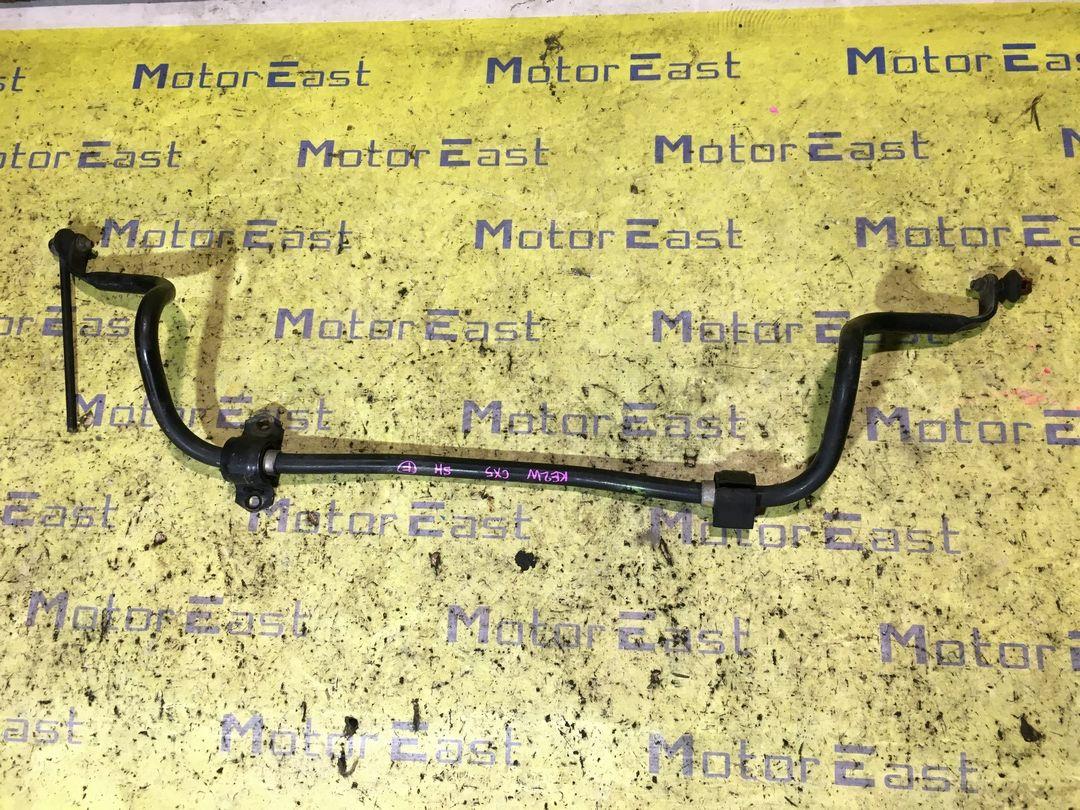 MotorEast MotorEast MotorEas
otorEast MotorEast MotorEast M
MotorEast MotorEast MotorEa
orEast MotorEast MotorEast
MotorEast MotorEast MotorE
East MotorEast MotorEast
KE2W CX5 SH (F)
MotorEast MotorEast MotorE
ast MotorEast MotorEast